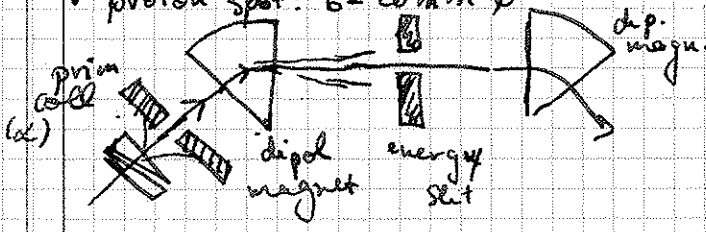 proton spot: 6-
dip.
magn.
prim
coll
(α)
dipol
magnet
energy
slit